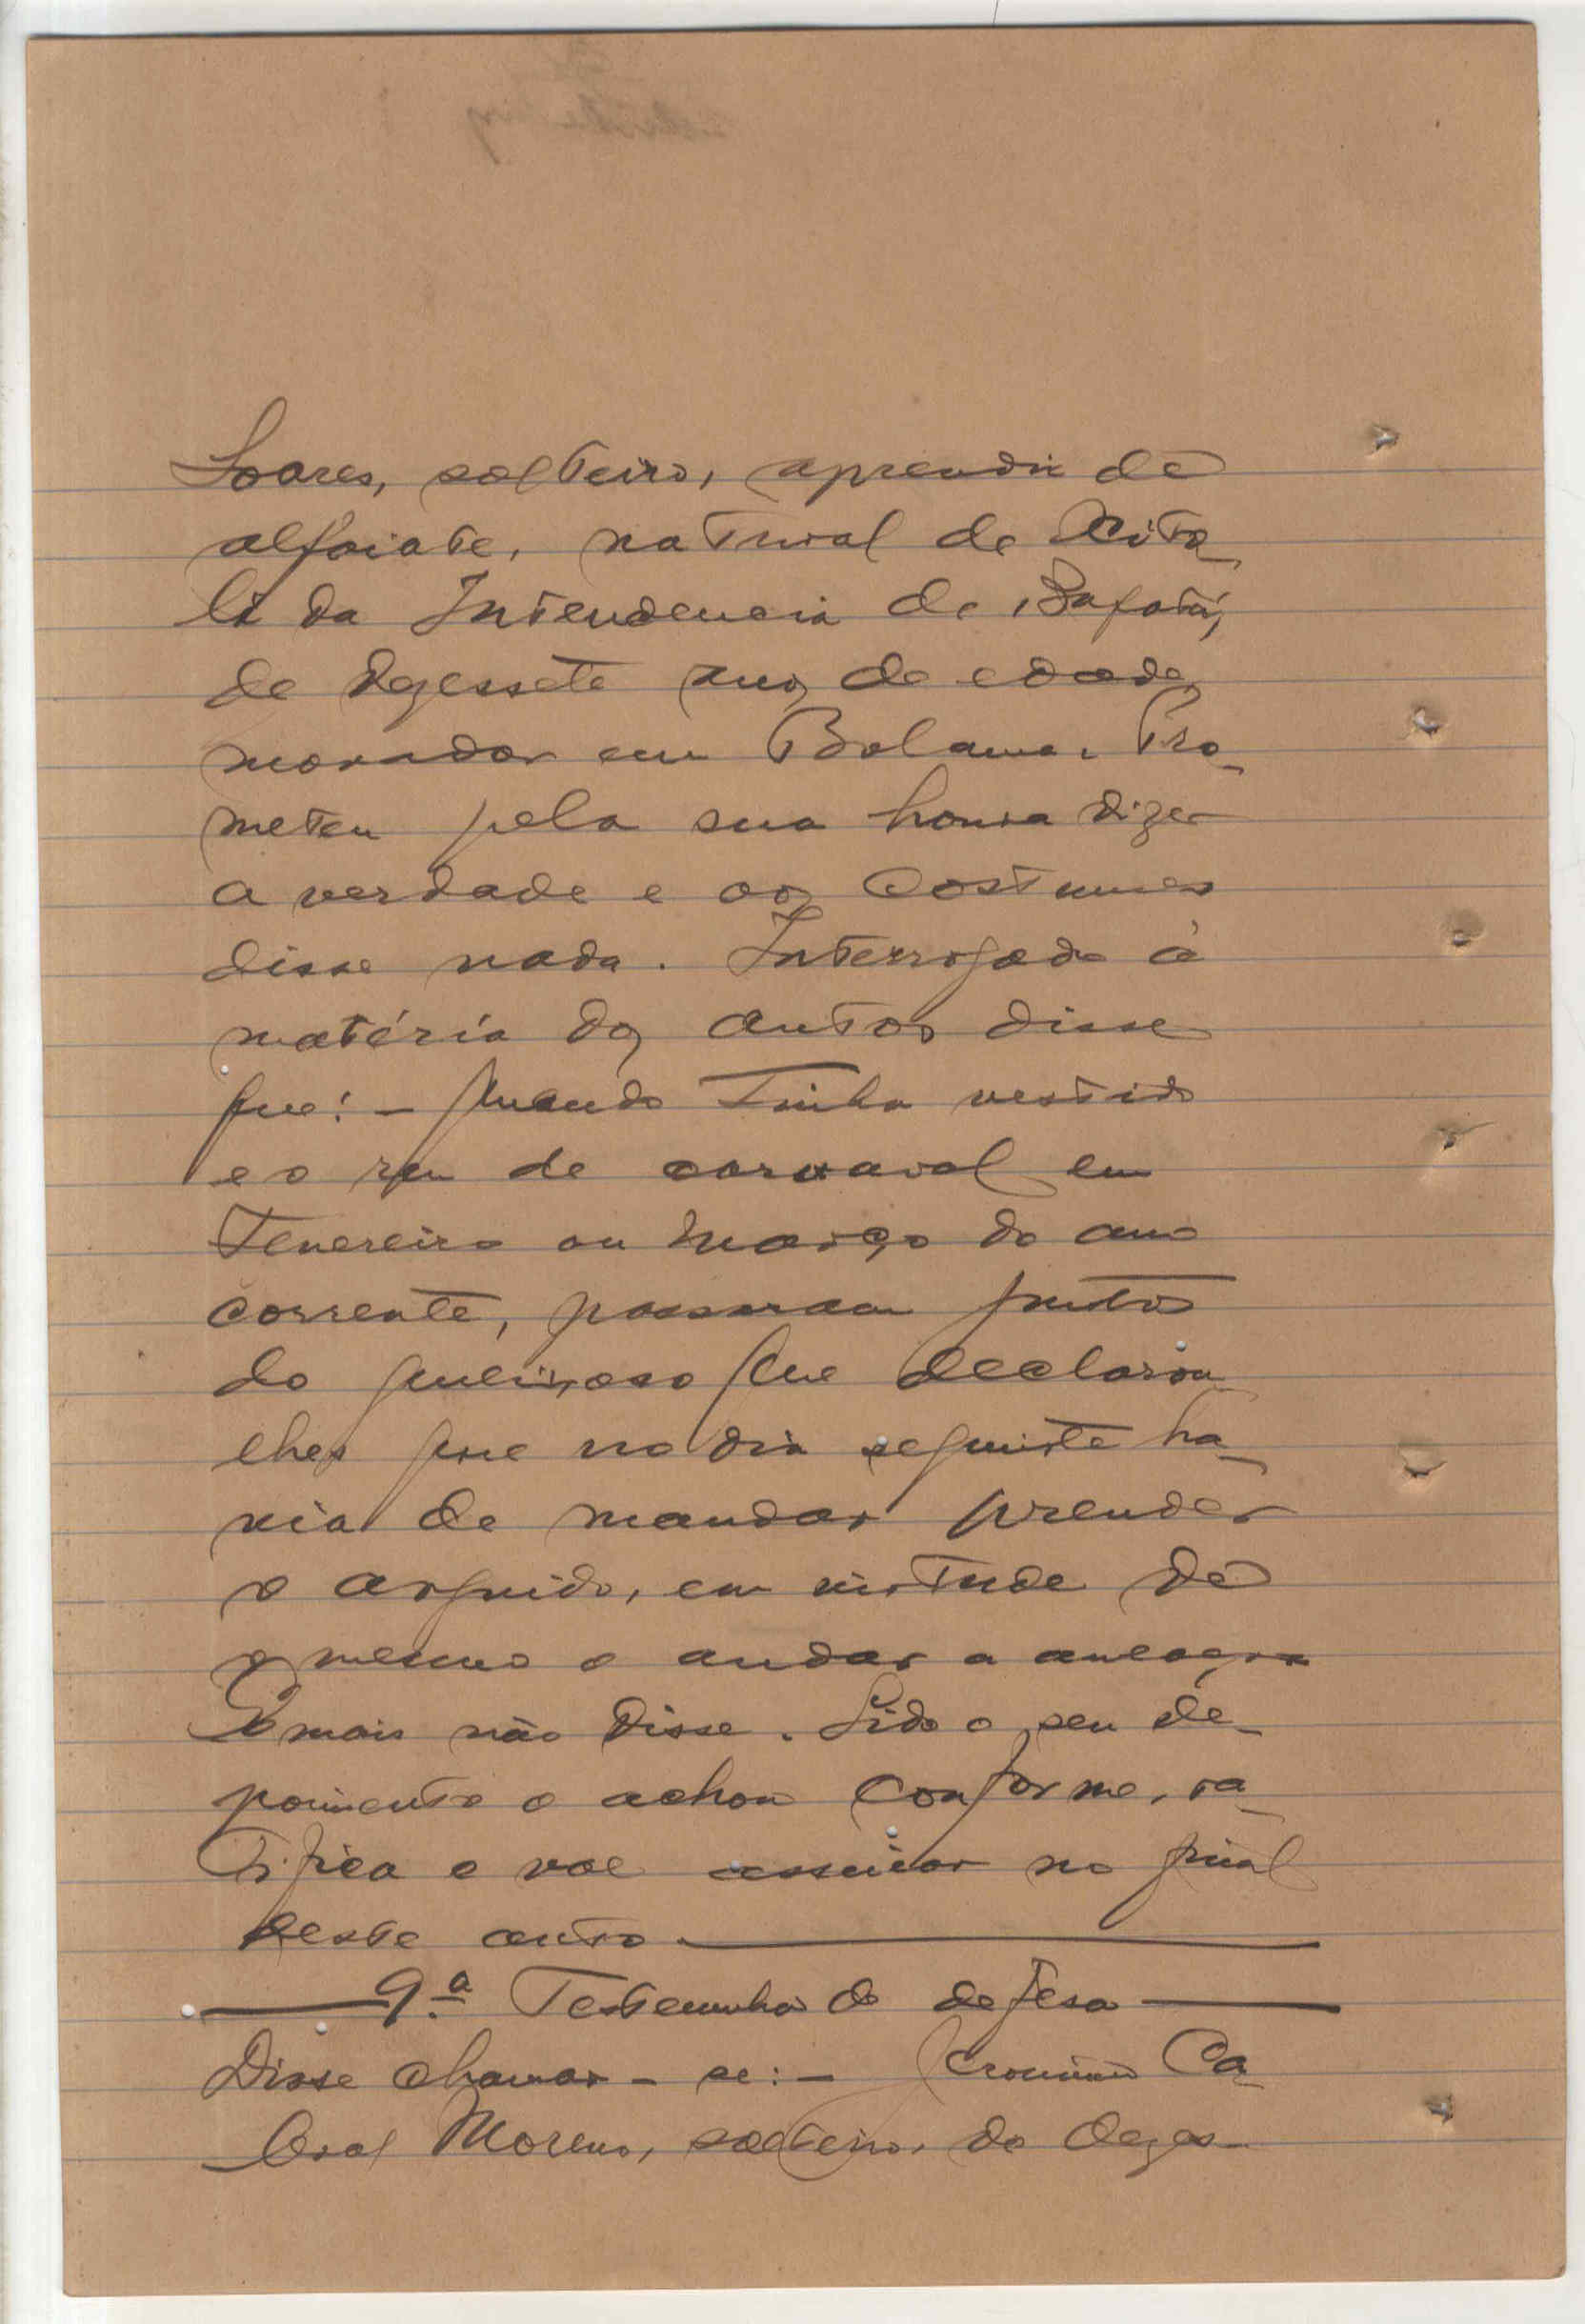 Soares, solteiro, aprendiz de
alfaiate, natural de Xito_
li da Intendencia de Bafatá,
de dezessete anos de edade,
morador em Bolama. Pro_
meteu pela sua honra dizer
a verdade e aos costumes
disse nada. Interrogado á
matéria dos autos disse
que: - quando tinha vestido
e o reu de carnaval em
Fevereiro ou Março do ano
corrente, passaram juntos
do queixoso que declarou
lhes que no dia seguinte ha_
via de mandar prender
o arguido, em virtude de
o mesmo o andar a ameaçar
E mais não disse. Lido o seu de_
poimento o achou conforme, ra_
tifica e vae assinar no final
deste auto
9.ª Testemunha de defesa
Disse chamar-se: - Jeronimo Ca_
bral Moreno, solteiro, de dezes_